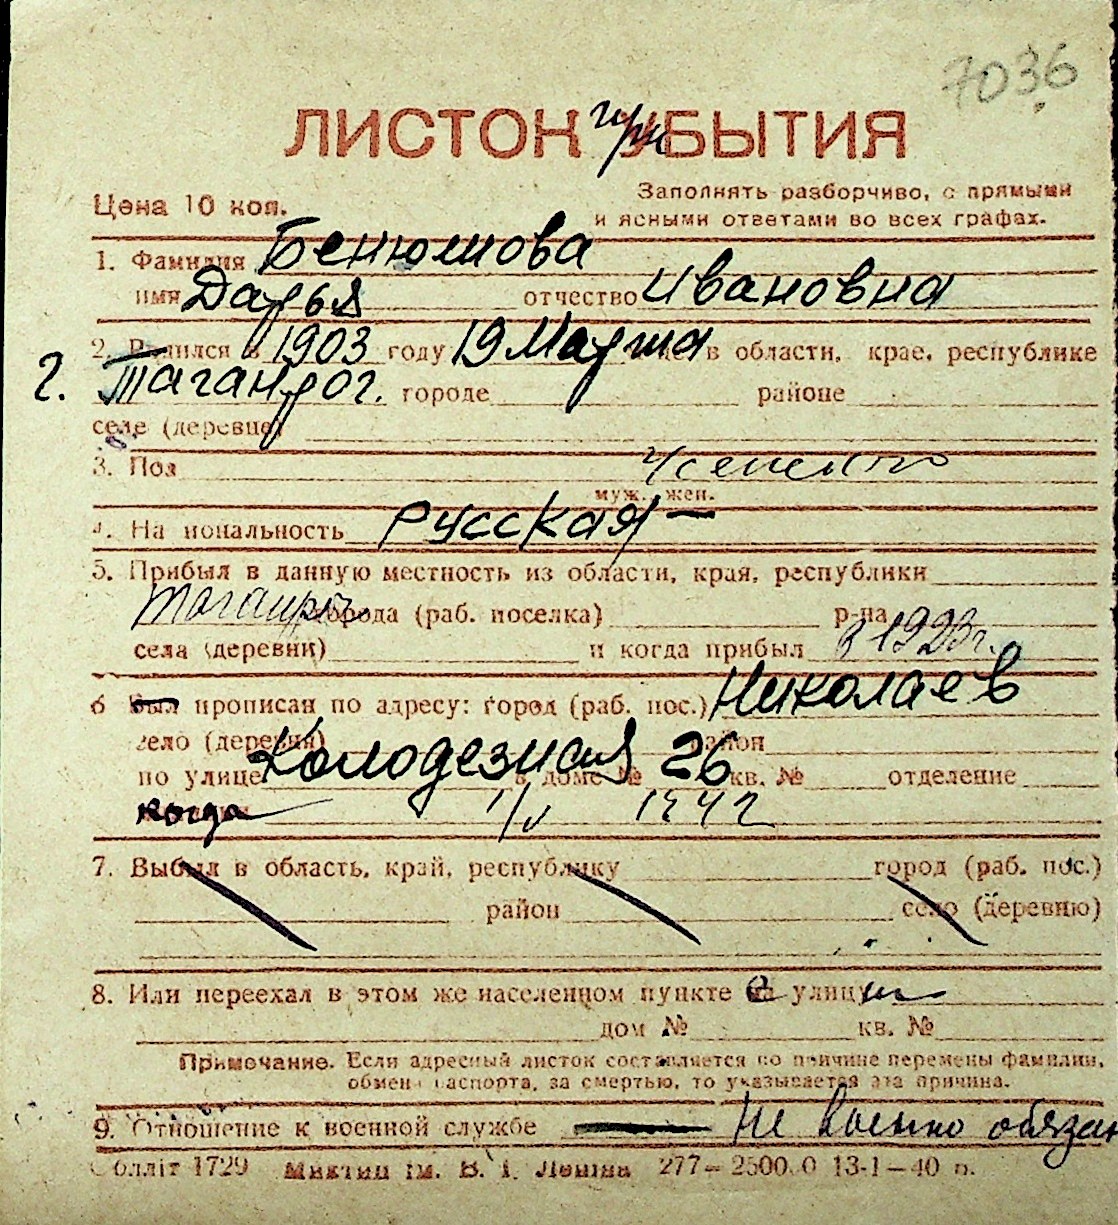 7036
ЛИСТОК при УБЫТИЯ
Цена 10 коп.
Заполнять разборчиво, с прямыми
и ясными ответами во всех графах.
1. Фамилия Бенюмова
имя Дарья отчество Ивановна
2. Родился в 1903 году 19 Марта в области, крае, республике
г. Таганрог. городе районе
селе (деревне)
3. Пол женский
муж., жен.
4. Национальность Русская
5. Прибыл в данную местность из области, края, республики
Таганрог города (раб. поселка) р-на
села (деревни) и когда прибыл в 1923 г.
6 Был прописан по адресу: город (раб. пос.) Николаев
село (деревня) район
по улице Колодезная в доме № 26 кв. № отделение
когда 1/V 1942
7. Выбыл в область, край, республику город (раб. пос.)
район село (деревню)
8. Или переехал в этом же населенном пункте с на улицу ы
дом № кв. №
Примечание. Если адресный листок составляется по причине перемены фамилии,
обмена паспорта, за смертью, то указывается эта причина.
9. Отношение к военной службе Не военно обязан
Облліт 1729 Миктип ім. В. І. Леніна 277—2500.0 13-1—40 п.